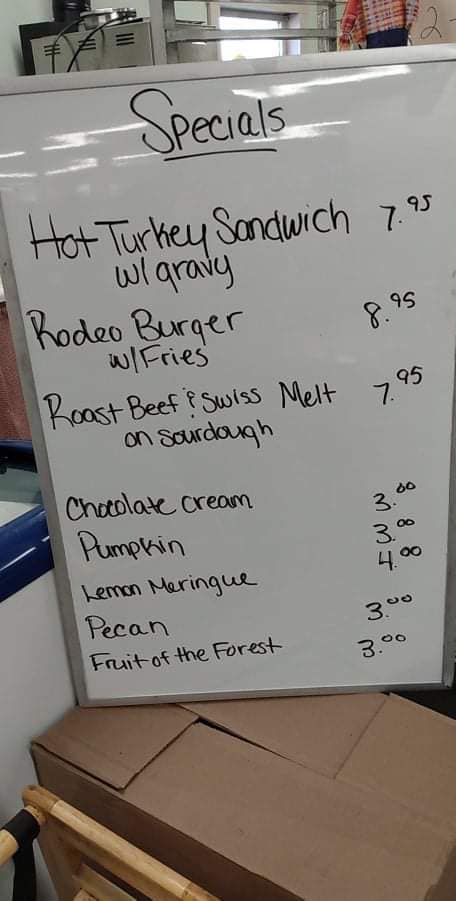 2-
Specials
Hot Turkey Sandwich 7.95
w/ gravy
Rodeo Burger 8.95
w/Fries
Roast Beef & Swiss Melt 7.95
on Sourdough
Chocolate Cream 3.00
Pumpkin 3.00
Lemon Meringue 4.00
Pecan 3.00
Fruit of the Forest 3.00